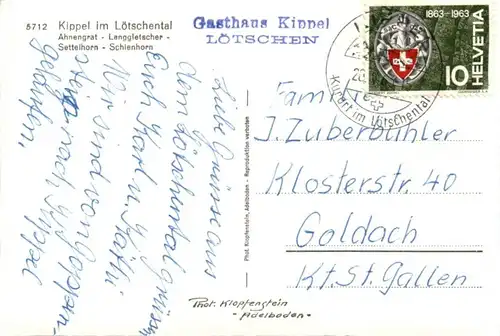 5712 Kippel im Lötschental
Ahnengrat - Lenggletscher -
Settelhorn - Schienhorn
Gasthaus Kippel
LÖTSCHEN
Liebe Grüsse aus
dem Lötschental grüssen
Euch Karl u. Käthi
Wir sind von Goppen-
nach
gelaufen,
Phot. Klopfenstein, Adelboden - Reproduktion verboten
Phot. Klopfenstein
-Adelboden-
1863-1963
HELVETIA
10
Kurort im Lötschental
Fam.
J. Zuberbühler
Klosterstr. 40
Goldach
Kt. St. Gallen